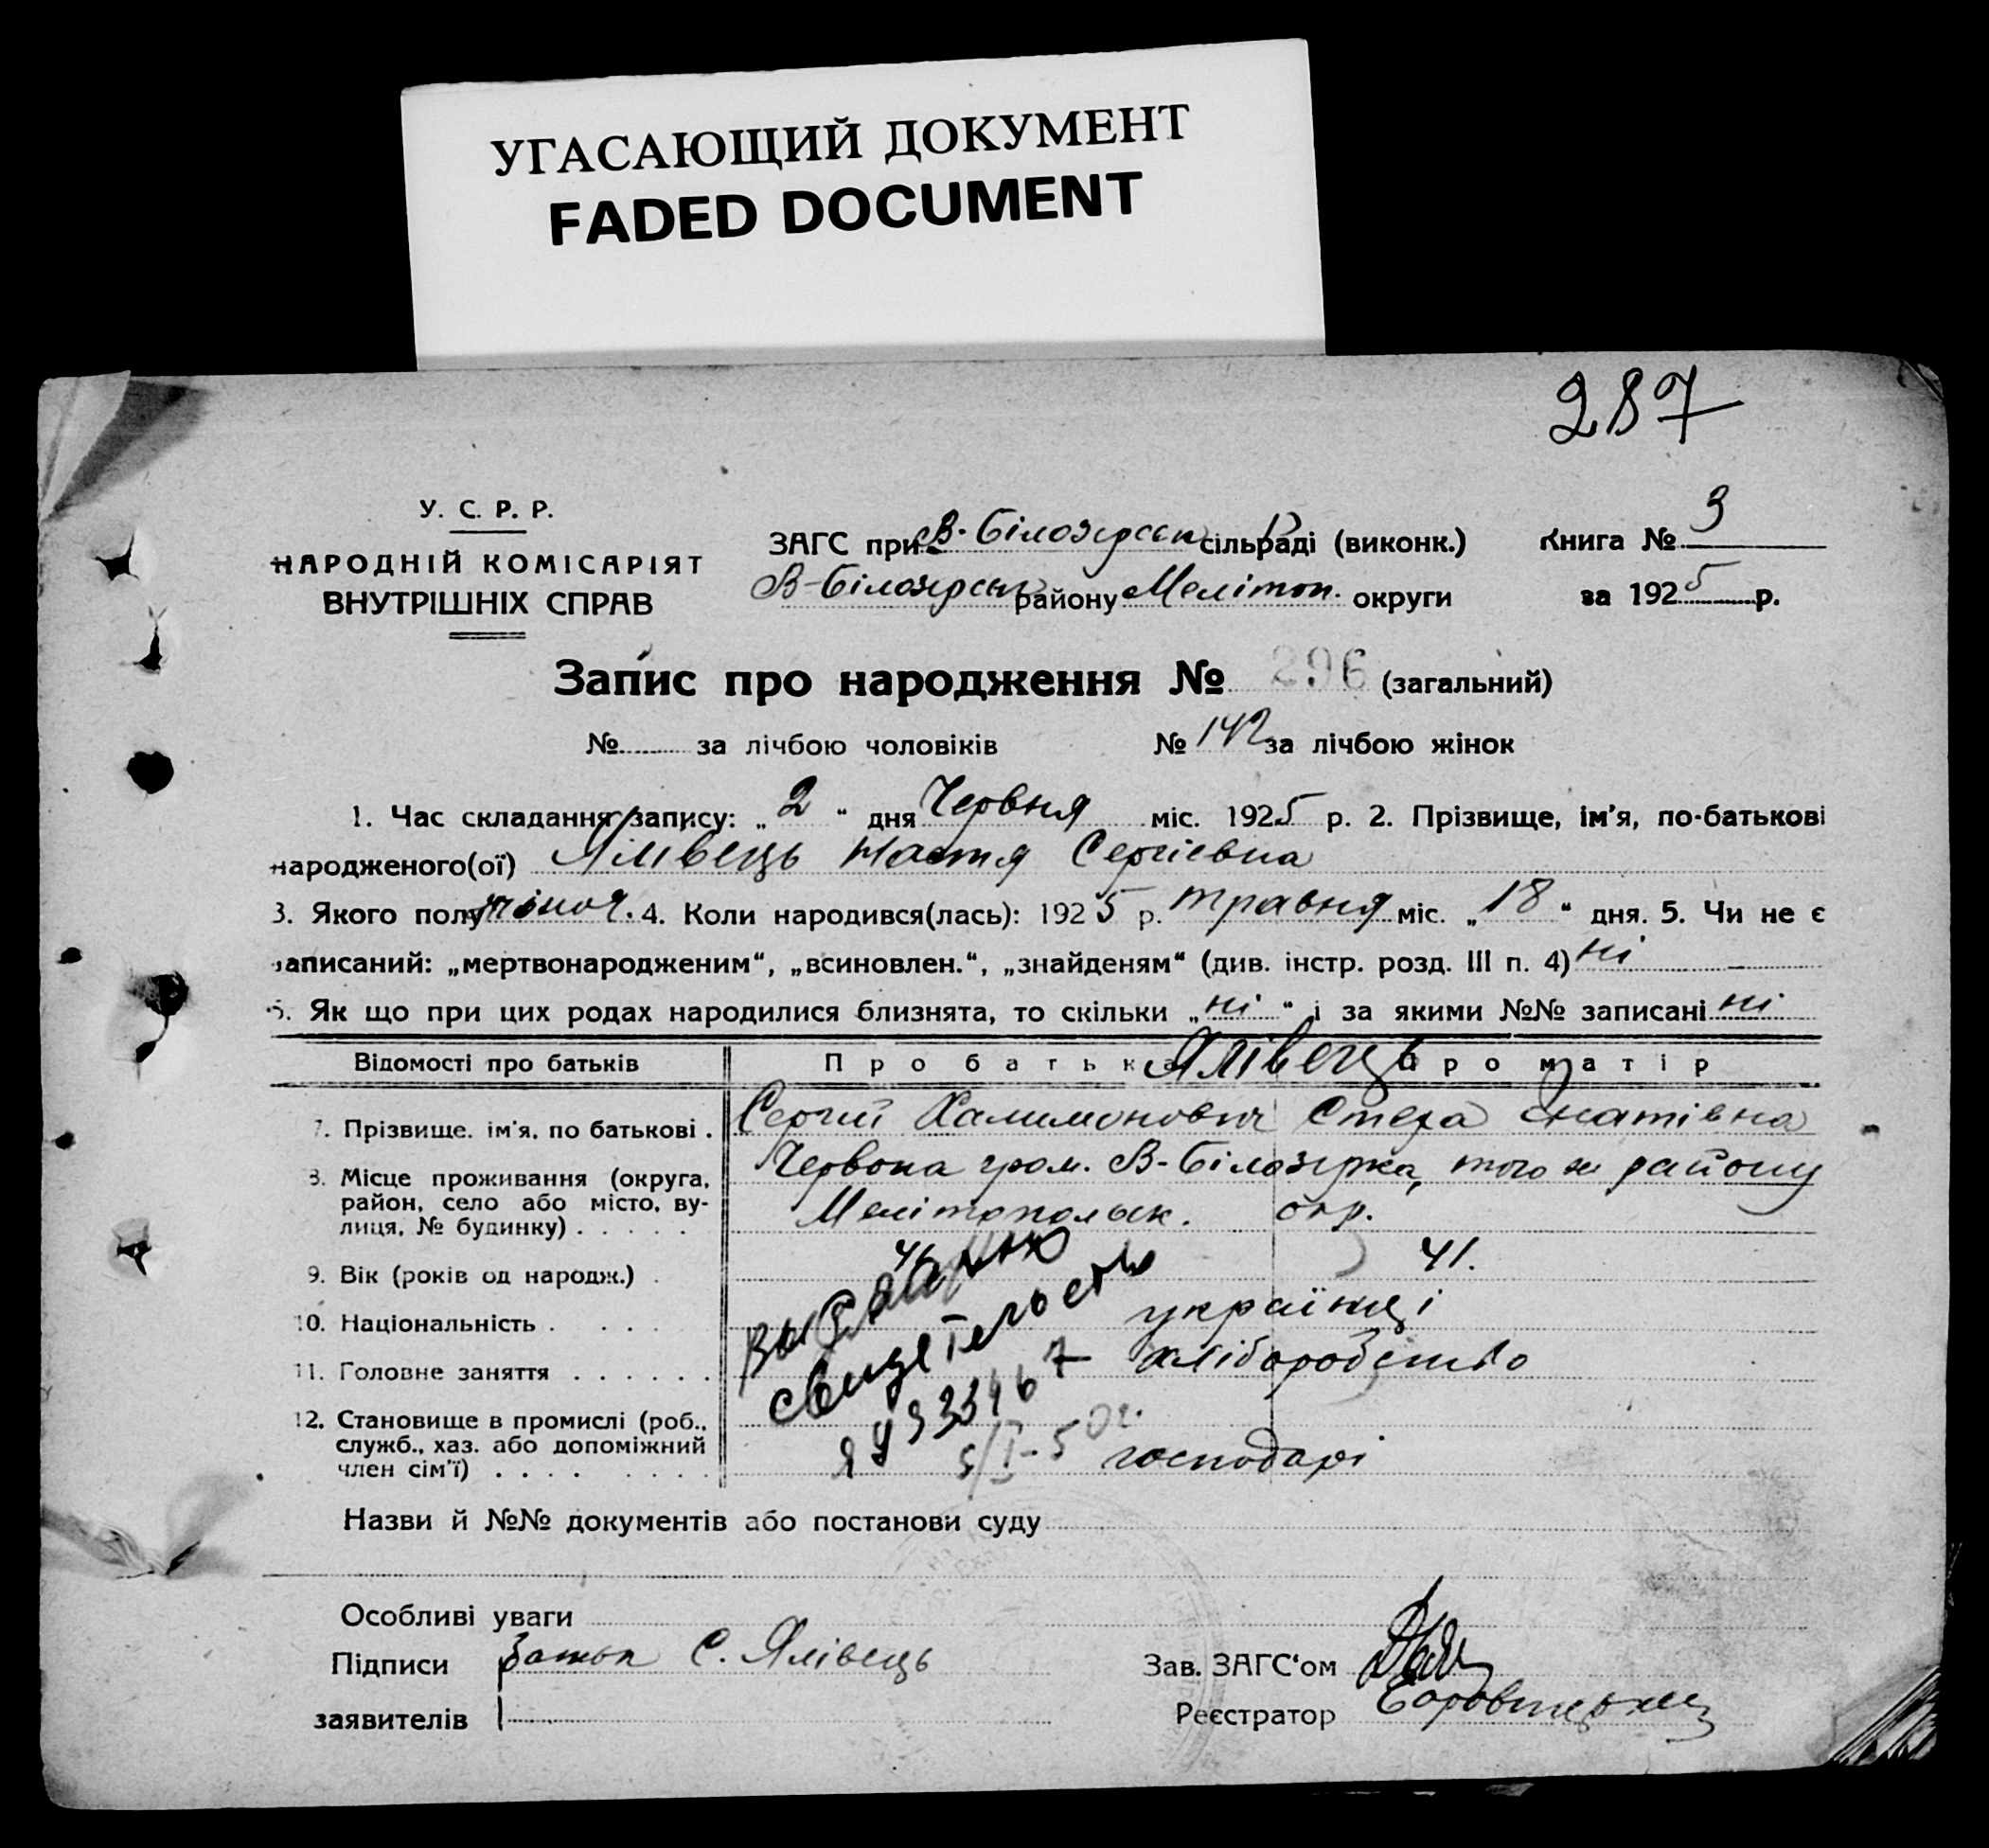 УГАСАЮЩИЙ ДОКУМЕНТ
FADED DOCUMENT
287
У. С. Р. Р.
НАРОДНІЙ КОМІСАРІЯТ
ВНУТРІШНІХ СПРАВ
ЗАГС при В-Білозірськ сільраді (виконк.)
В-Білозірськ району Мелітоп. округи
Книга № 3
за 1925 р.
Запис про народження № 296 (загальний)
№ за лічбою чоловіків № 142 за лічбою жінок
1. Час складання запису: „2“ дня Червня міс. 1925 р. 2. Прізвище, ім'я, по-батькові
народженого(ої) Ялівець Настя Сергієвна
3. Якого полу жіноч. 4. Коли народився(лась): 1925 р. травня міс. „18“ дня. 5. Чи не є
записаний: „мертвонародженим“, „всиновлен.“, „знайденям“ (див. інстр. розд. III п. 4) ні
6. Як що при цих родах народилися близнята, то скільки „ні“ і за якими №№ записані ні
Відомості про батьків Про батька Про матір
Ялівець
7. Прізвище. ім'я, по батькові . Сергій Халимонович Стеха Гнатівна
8. Місце проживання (округа, Червона гром. В-Білозірка, того ж району
район, село або місто, ву- Мелітопольск. окр.
лиця, № будинку) . . . . .
9. Вік (років од народж.) . 41.
10. Національність . . . . українці
11. Головне заняття . . . . . . хліборобство
12. Становище в промислі (роб.,
служб., хаз. або допоміжний
член сім'ї) . . . . . . . . господарі
свидетельство
5/I-50г.
Назви й №№ документів або постанови суду
Особливі уваги
Підписи Батьк С. Ялівець
заявителів
Зав. ЗАГС‘ом
Реєстратор